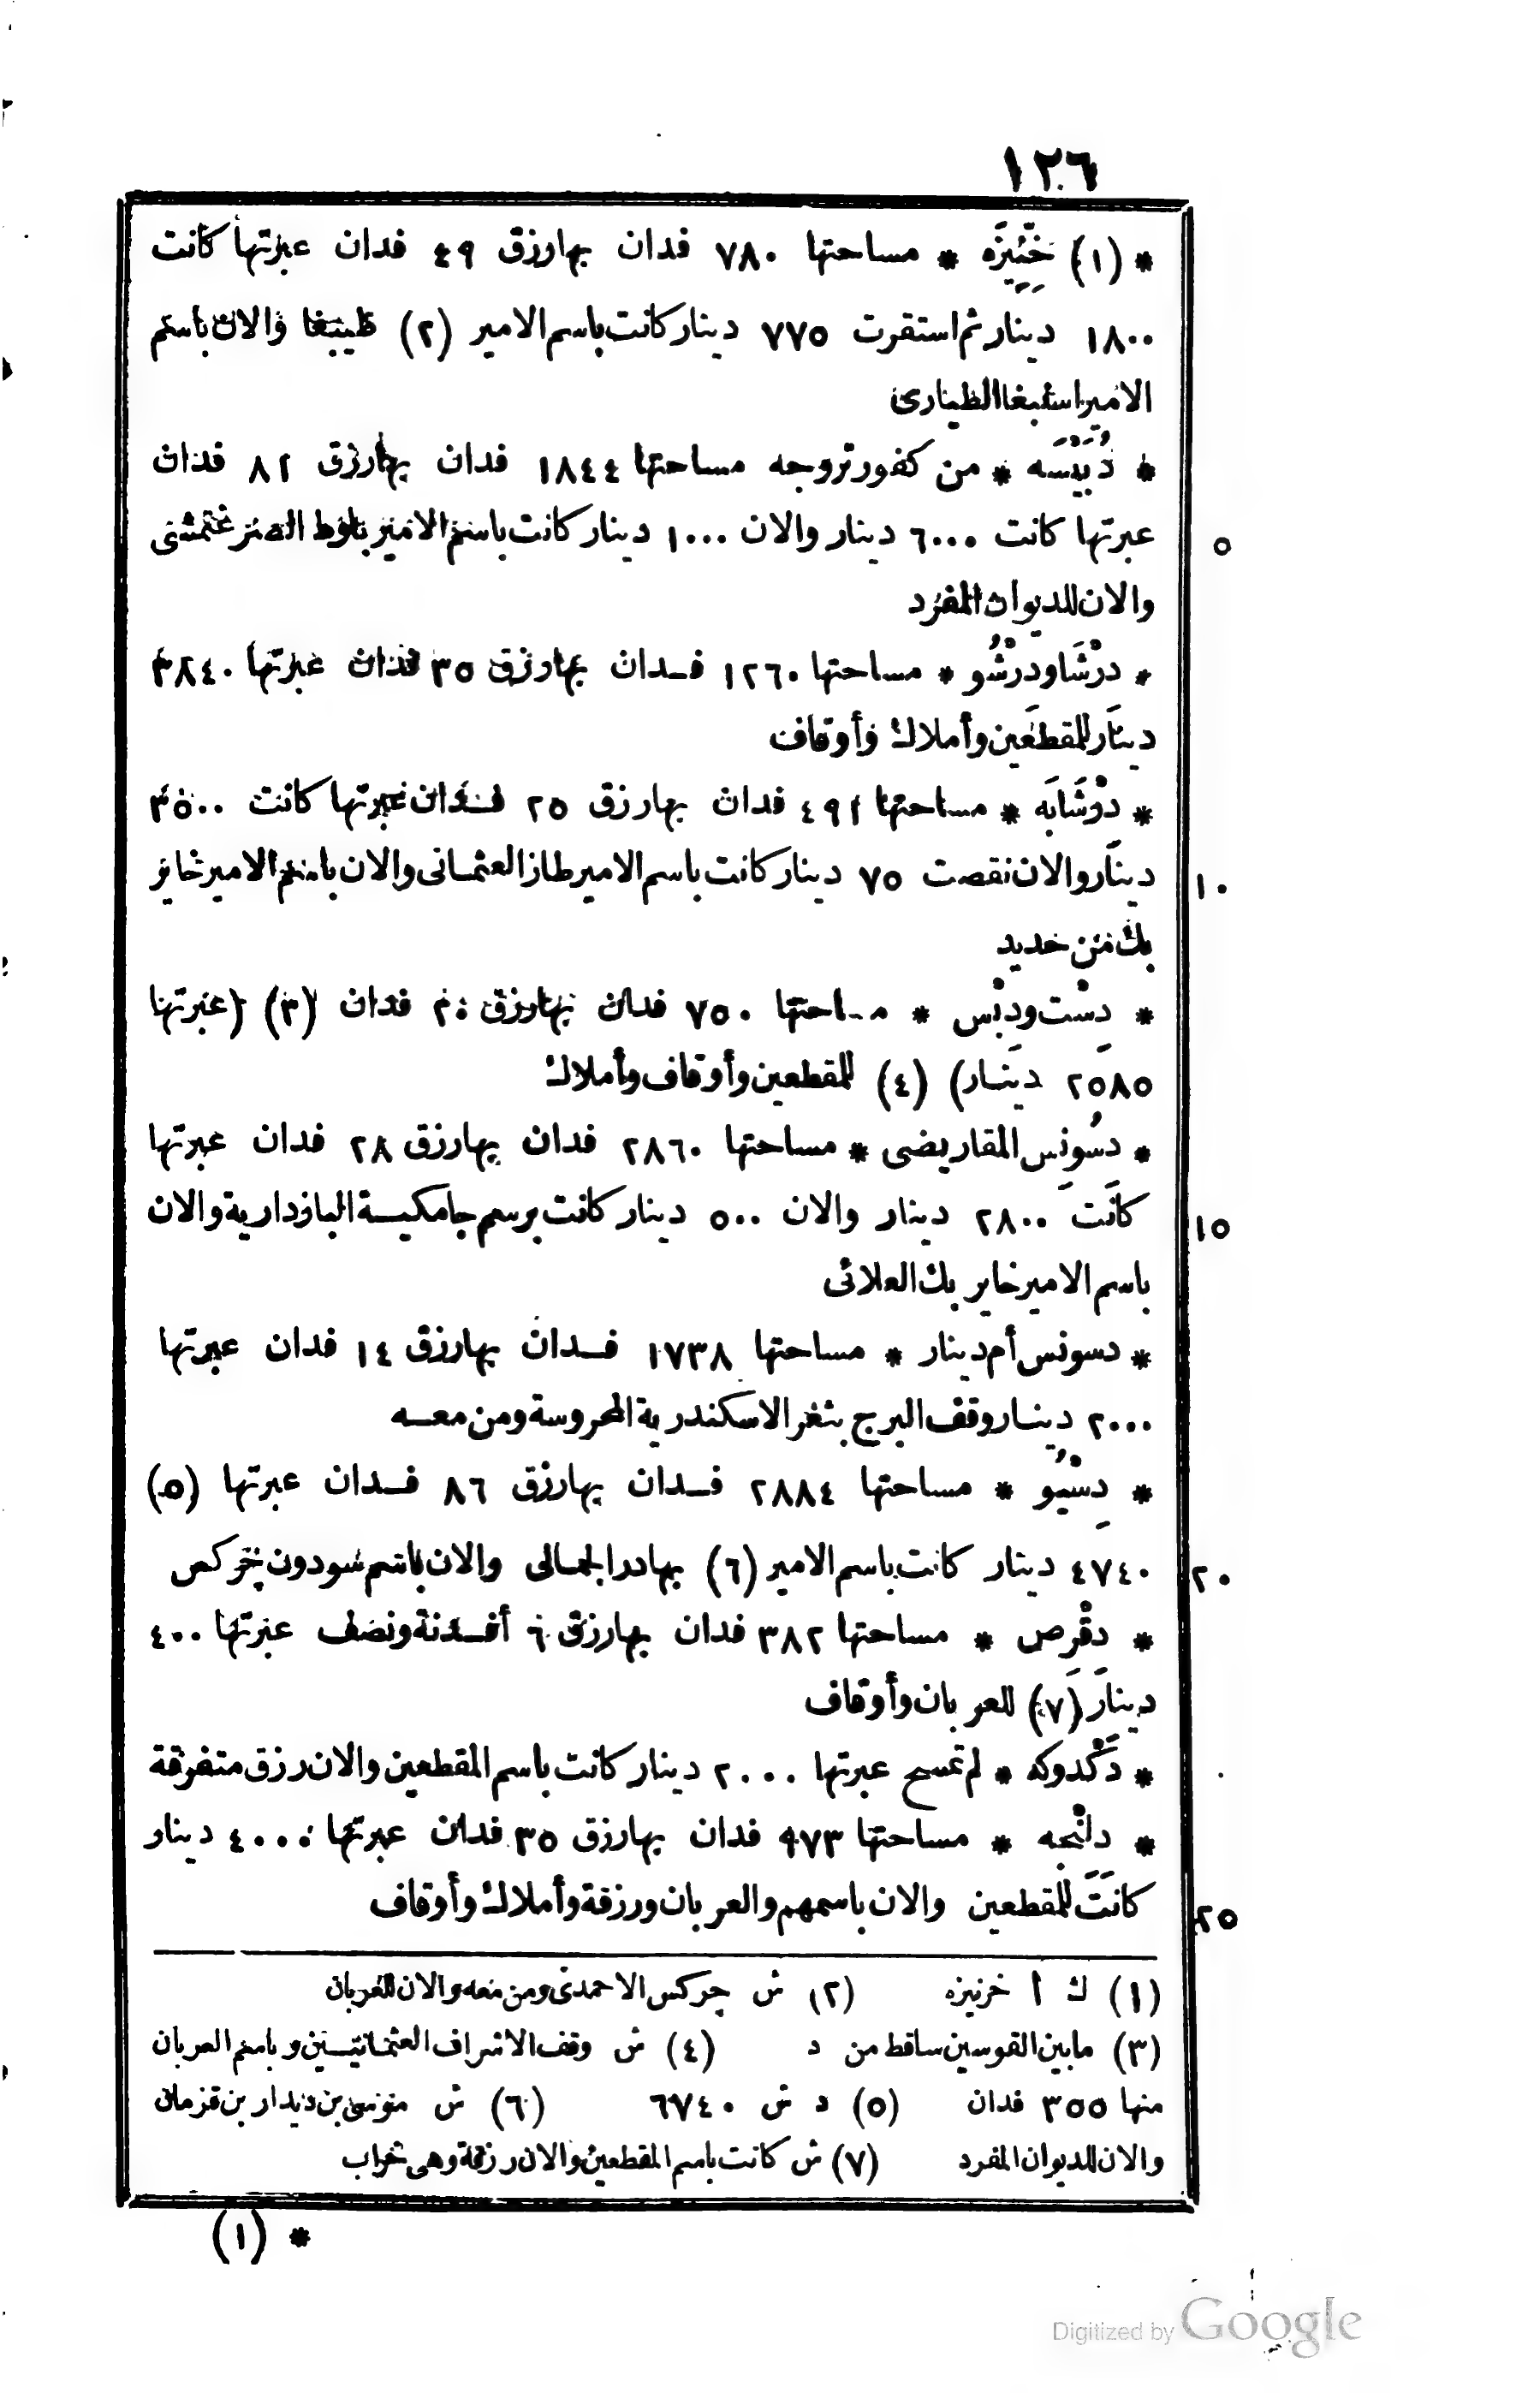 ١٢٦
* (١) خنيزه * مساحتها ٧٨٠ فدان بها رزق ٤٩ فدان عبرتها كانت
١٨٠٠ دينار ثم استقرت ٧٧٥ دينار كانت باسم الامير (٢) طيبغا والان باسم
الامير اسنبغا الطيارى
* دبيسه * من كفور تروجه مساحتها ١٨٤٤ فدان بها رزق ٨٢ فدان
٥ عبرتها كانت ٦٠٠٠ دينار والان ١٠٠٠ دينار كانت باسم الامير بلوط الصرغتمشى
والان للديوان المفرد
* درْشَا ودرْشُو * مساحتها ١٢٦٠ فدان بها رزق ٣٥ فدان عبرتها ٣٨٤٠
دينار للمقطعين وأملاك وأوقاف
* دْرشَابَه * مساحتها ٤٩١ فدان بها رزق ٢٥ فدان عبرتها كانت ٣٥٠٠
١٠ دينار والان نقصت ٧٥ دينار كانت باسم الامير طاز العثمانى والان باسم الامير خاير
بك من حديد
* دِسْت ودبْس * مساحتها ٧٥٠ فدان بها رزق ٢٠ فدان (٣) (عبرتها
٢٥٨٥ دينار) (٤) للمقطعين وأوقاف وأملاك
* دسُونِس المقاريضى * مساحتها ٢٨٦٠ فدان بها رزق ٢٨ فدان عبرتها
١٥ كانت ٢٨٠٠ دينار والان ٥٠٠ دينار كانت برسم جامكية البازدارية والان
باسم الامير خاير بك العلائى
* دسونس أم دينار * مساحتها ١٧٣٨ فدان بها رزق ١٤ فدان عبرتها
٢٠٠٠ دينار وقف البرج بثغر الاسكندرية المحروسة ومن معه
* دِسْيُو * مساحتها ٢٨٨٤ فدان بها رزق ٨٦ فدان عبرتها (٥)
٢٠ ٤٧٤٠ دينار كانت باسم الامير (٦) بهادر الجمالى والان باسم سودون چركس
* دِقْرص * مساحتها ٣٨٢ فدان بها رزق ٦ أفدنة ونصف عبرتها ٤٠٠
دينار (٧) للعربان وأوقاف
* دَكْدوكه * لم تمسح عبرتها ٢٠٠٠ دينار كانت باسم المقطعين والان رزق متفرقة
* دلنْجه * مساحتها ٩٧٣ فدان بها رزق ٣٥ فدان عبرتها ٤٠٠٠ دينار
٢٥ كانت للمقطعين والان باسمهم والعربان ورزقة وأملاك وأوقاف
(١) ك أ خرنيزه (٢) ش چركس الاحمدى ومن معه والان للعربان
(٣) ما بين القوسين ساقط من د (٤) ش وقف الاشراف العثمانيين وباسم العربان
منها ٣٥٥ فدان (٥) د ش ٦٧٤٠ (٦) ش موسى بن ديدار بن قزمان
والان للديوان المفرد (٧) ش كانت باسم المقطعين والان رزقة وهى خراب
* (١)
Digitized by Google